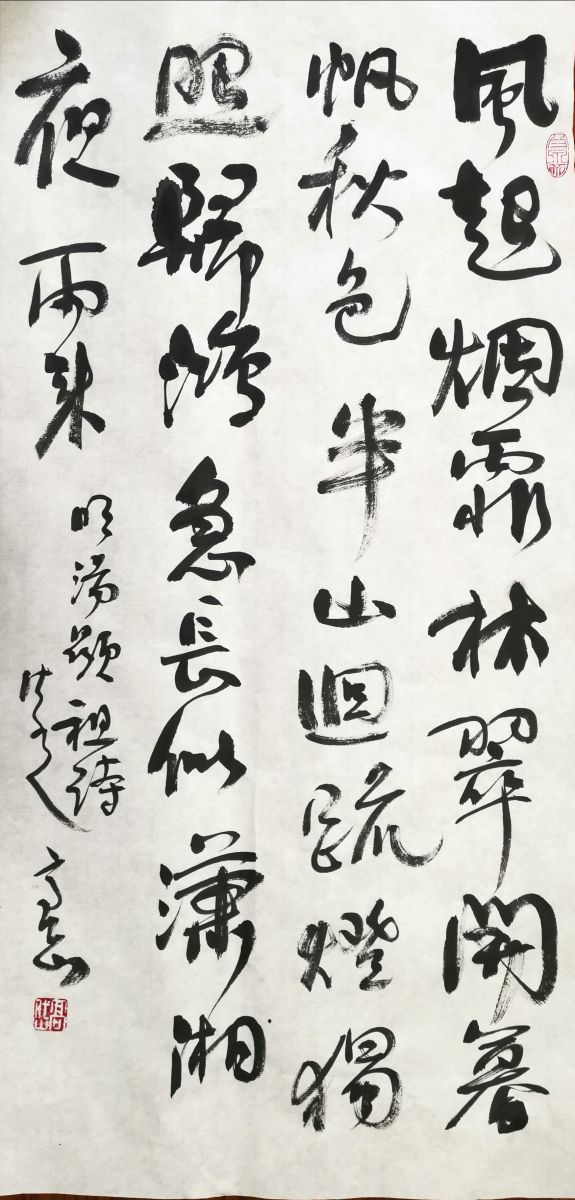 風起烟霏林翠開暮
帆秋色半山迴疏燈獨
照歸鴻急長似瀟湘
夜雨來
明湯顯祖詩